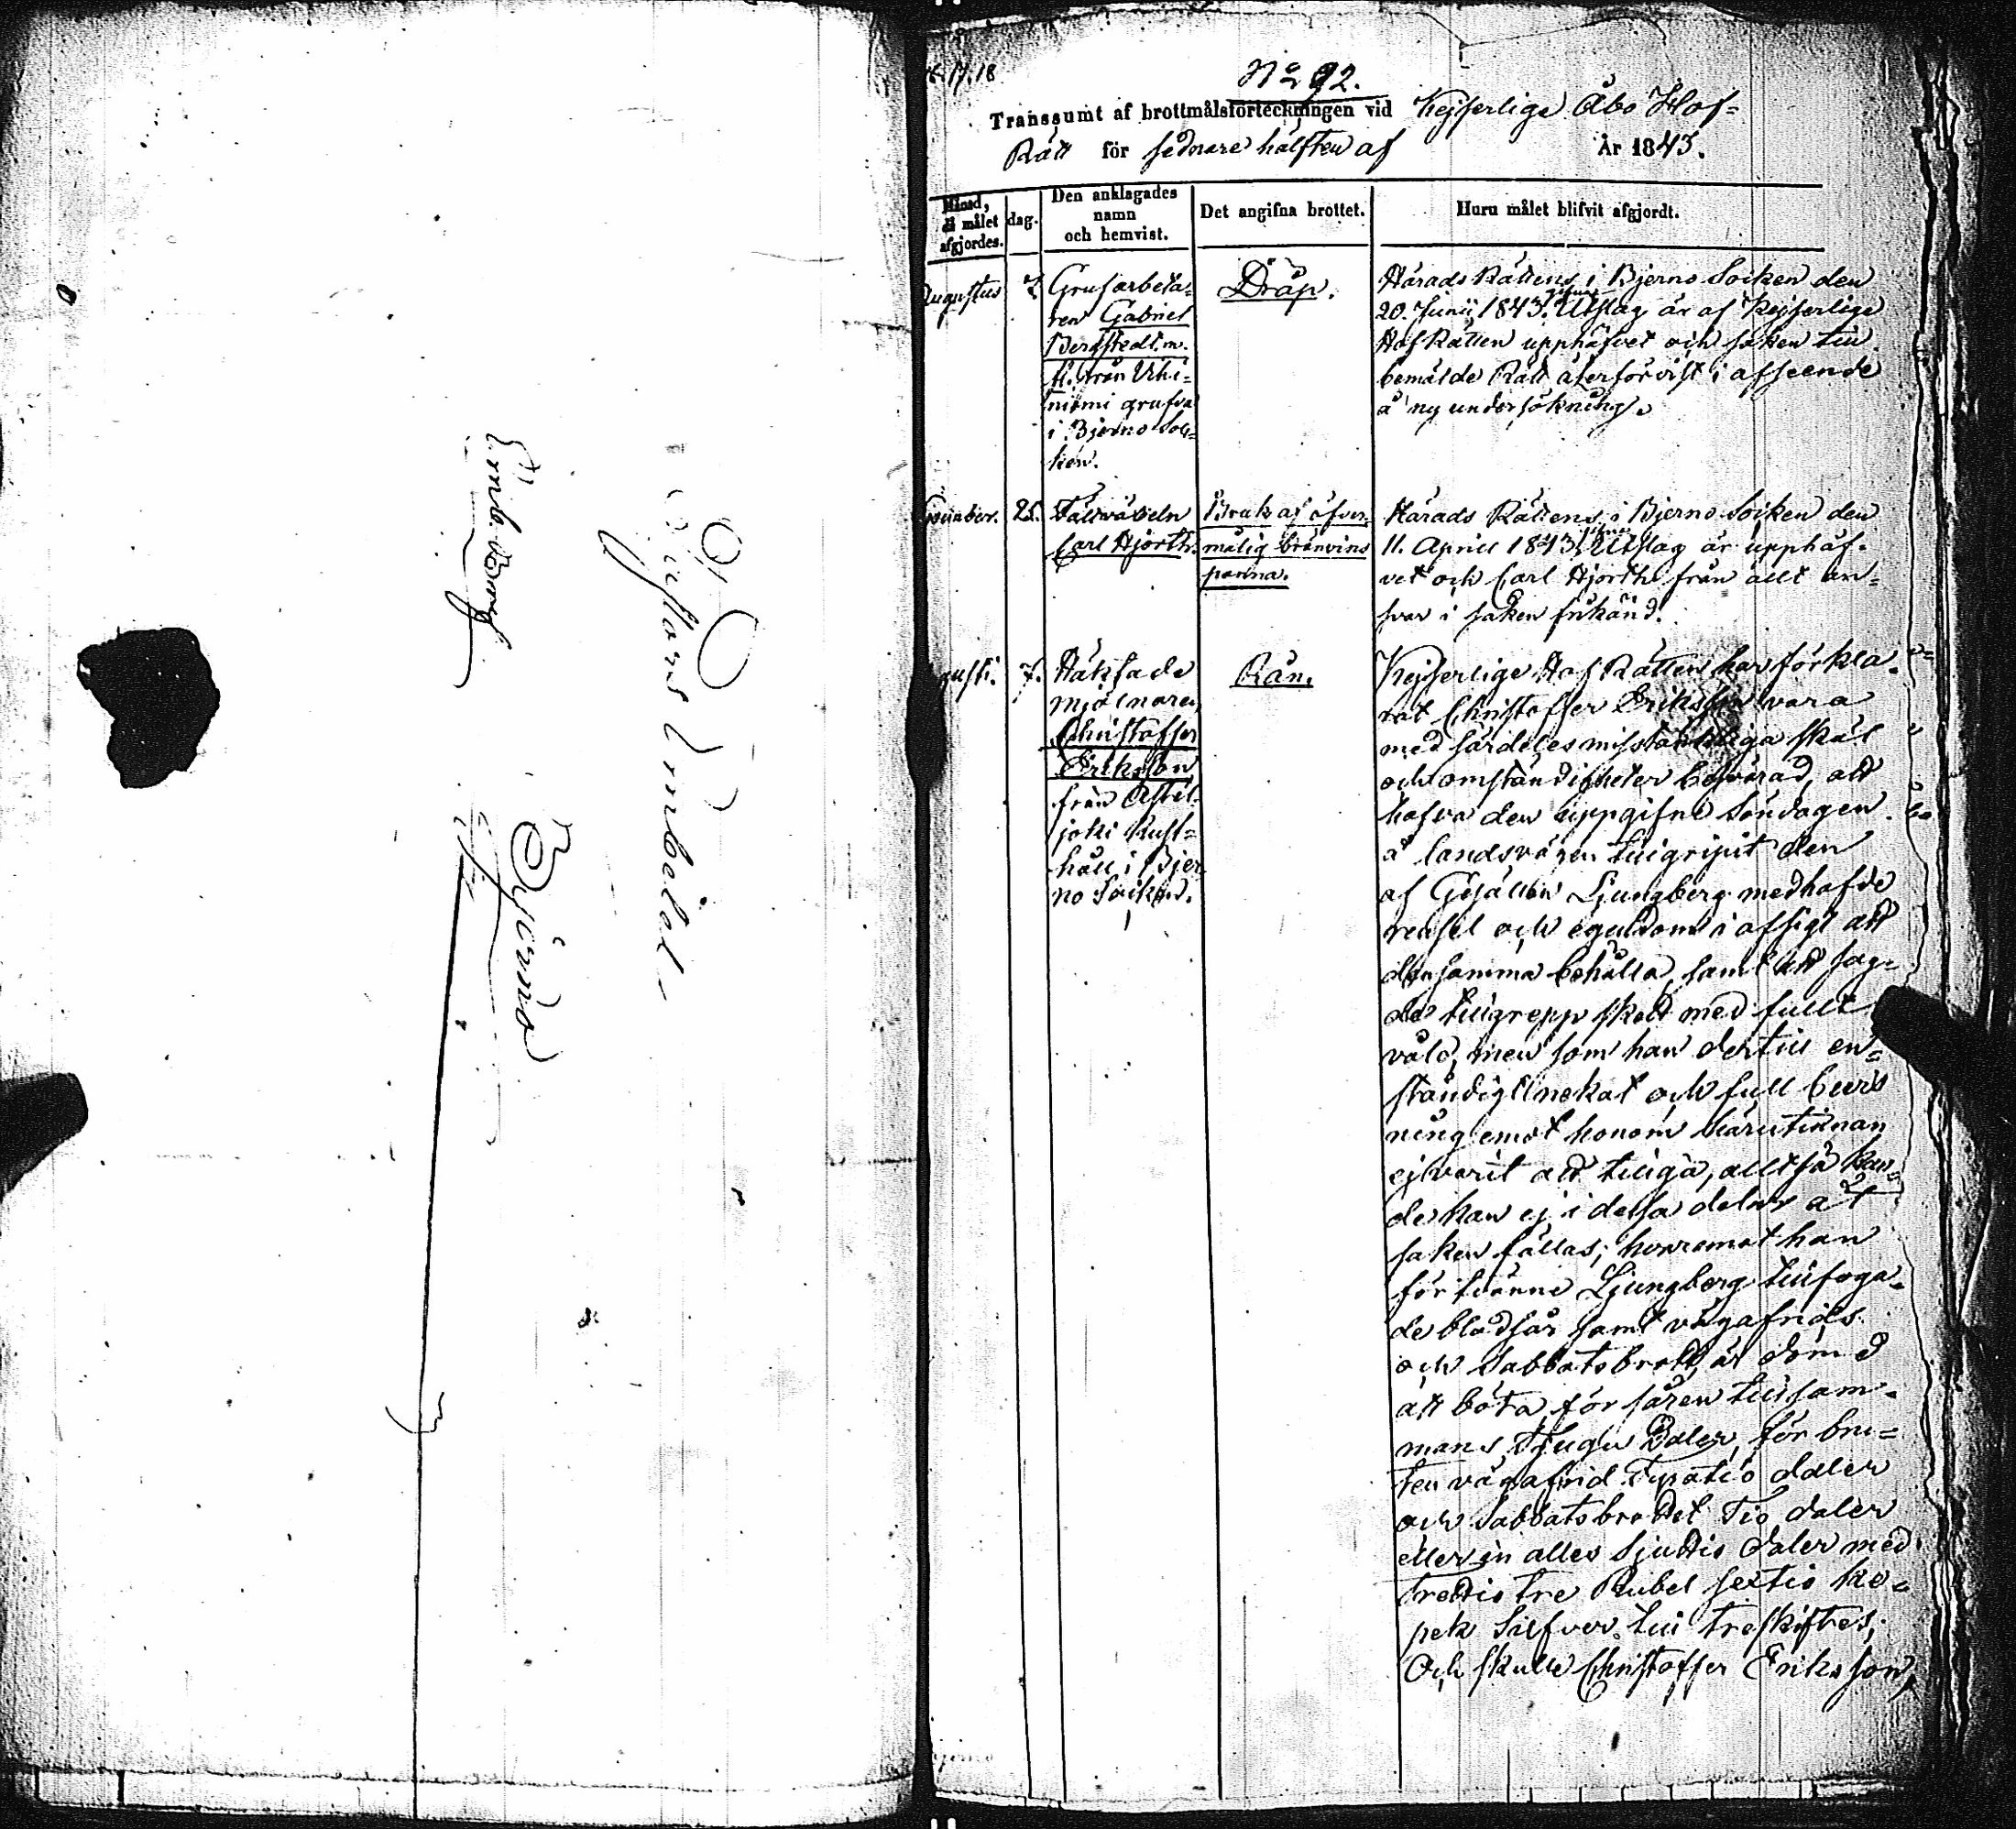 Bjerno
16. 17. 18
No 92.
Transsumt af brottmålsförteckningen vid Kejserlige Åbo Hof-
Rätt för sednare hälften af År 1843.
Månad, då målet afgjordes.
dag.
Den anklagades namn och hemvist.
Det angifna brottet.
Huru målet blifvit afgjordt.
Augustus
7
Grufarbeta-
ren Gabriel
från
niemi grufva
i Bjerno Soc-
ken.
Dråp.
Härads Rättens i Bjerno Socken den
20. Junii 1843. Utslag är af Kejserlige
Hof Rätten upphäfvet och saken till
bemälde Rätt återförvist i afseende
å ny undersökning.
25.
Fältväbeln
Carl Hjorth.
Bruk af öfver-
målig bränvins
panna.
Härads Rättens i Bjerno Socken den
11. April 1843 Utslag är upphäf-
vet och Carl Hjorth från allt an-
svar i saken frikänd.
gusti.
7.
Häktade
mjölnaren
Christoffer
Eriksson
från
joki Rust-
håll i Bjer
no Socken.
Rån.
Kejserlige Hof Rätten har förkla-
rat Christoffer Eriksson vara
med särdeles misstänkliga skäl
och omständigheter besvärad, att
hafva den uppgifne Söndagen
å landsvägen tillgripit den
af Gesällen Ljungberg medhafde
rensel och egendom i afsigt att
densamma behålla, samt att sag-
de tillgrepp skett med fullt
våld, men som han dertill en-
ständigt nekat och full bevis
ning emot honom härutinnan
ej varit att tillgå, alltså kun-
de han ej i dessa delar åt
saken fällas; hvaremot han
för Ljungberg tillfoga-
de blodsår samt vägafrids
och Sabbatsbrott är dömd
att böta för såren tillsam-
mans Tjugu Daler, för bru-
ten vägafrid Fyratio daler
och Sabbatsbrottet Tio daler
eller in alles Sjuttio daler med
trettio tre Rubel sextio ko-
pek Silfver till treskiftes;
Och skulle Christoffer Eriksson,